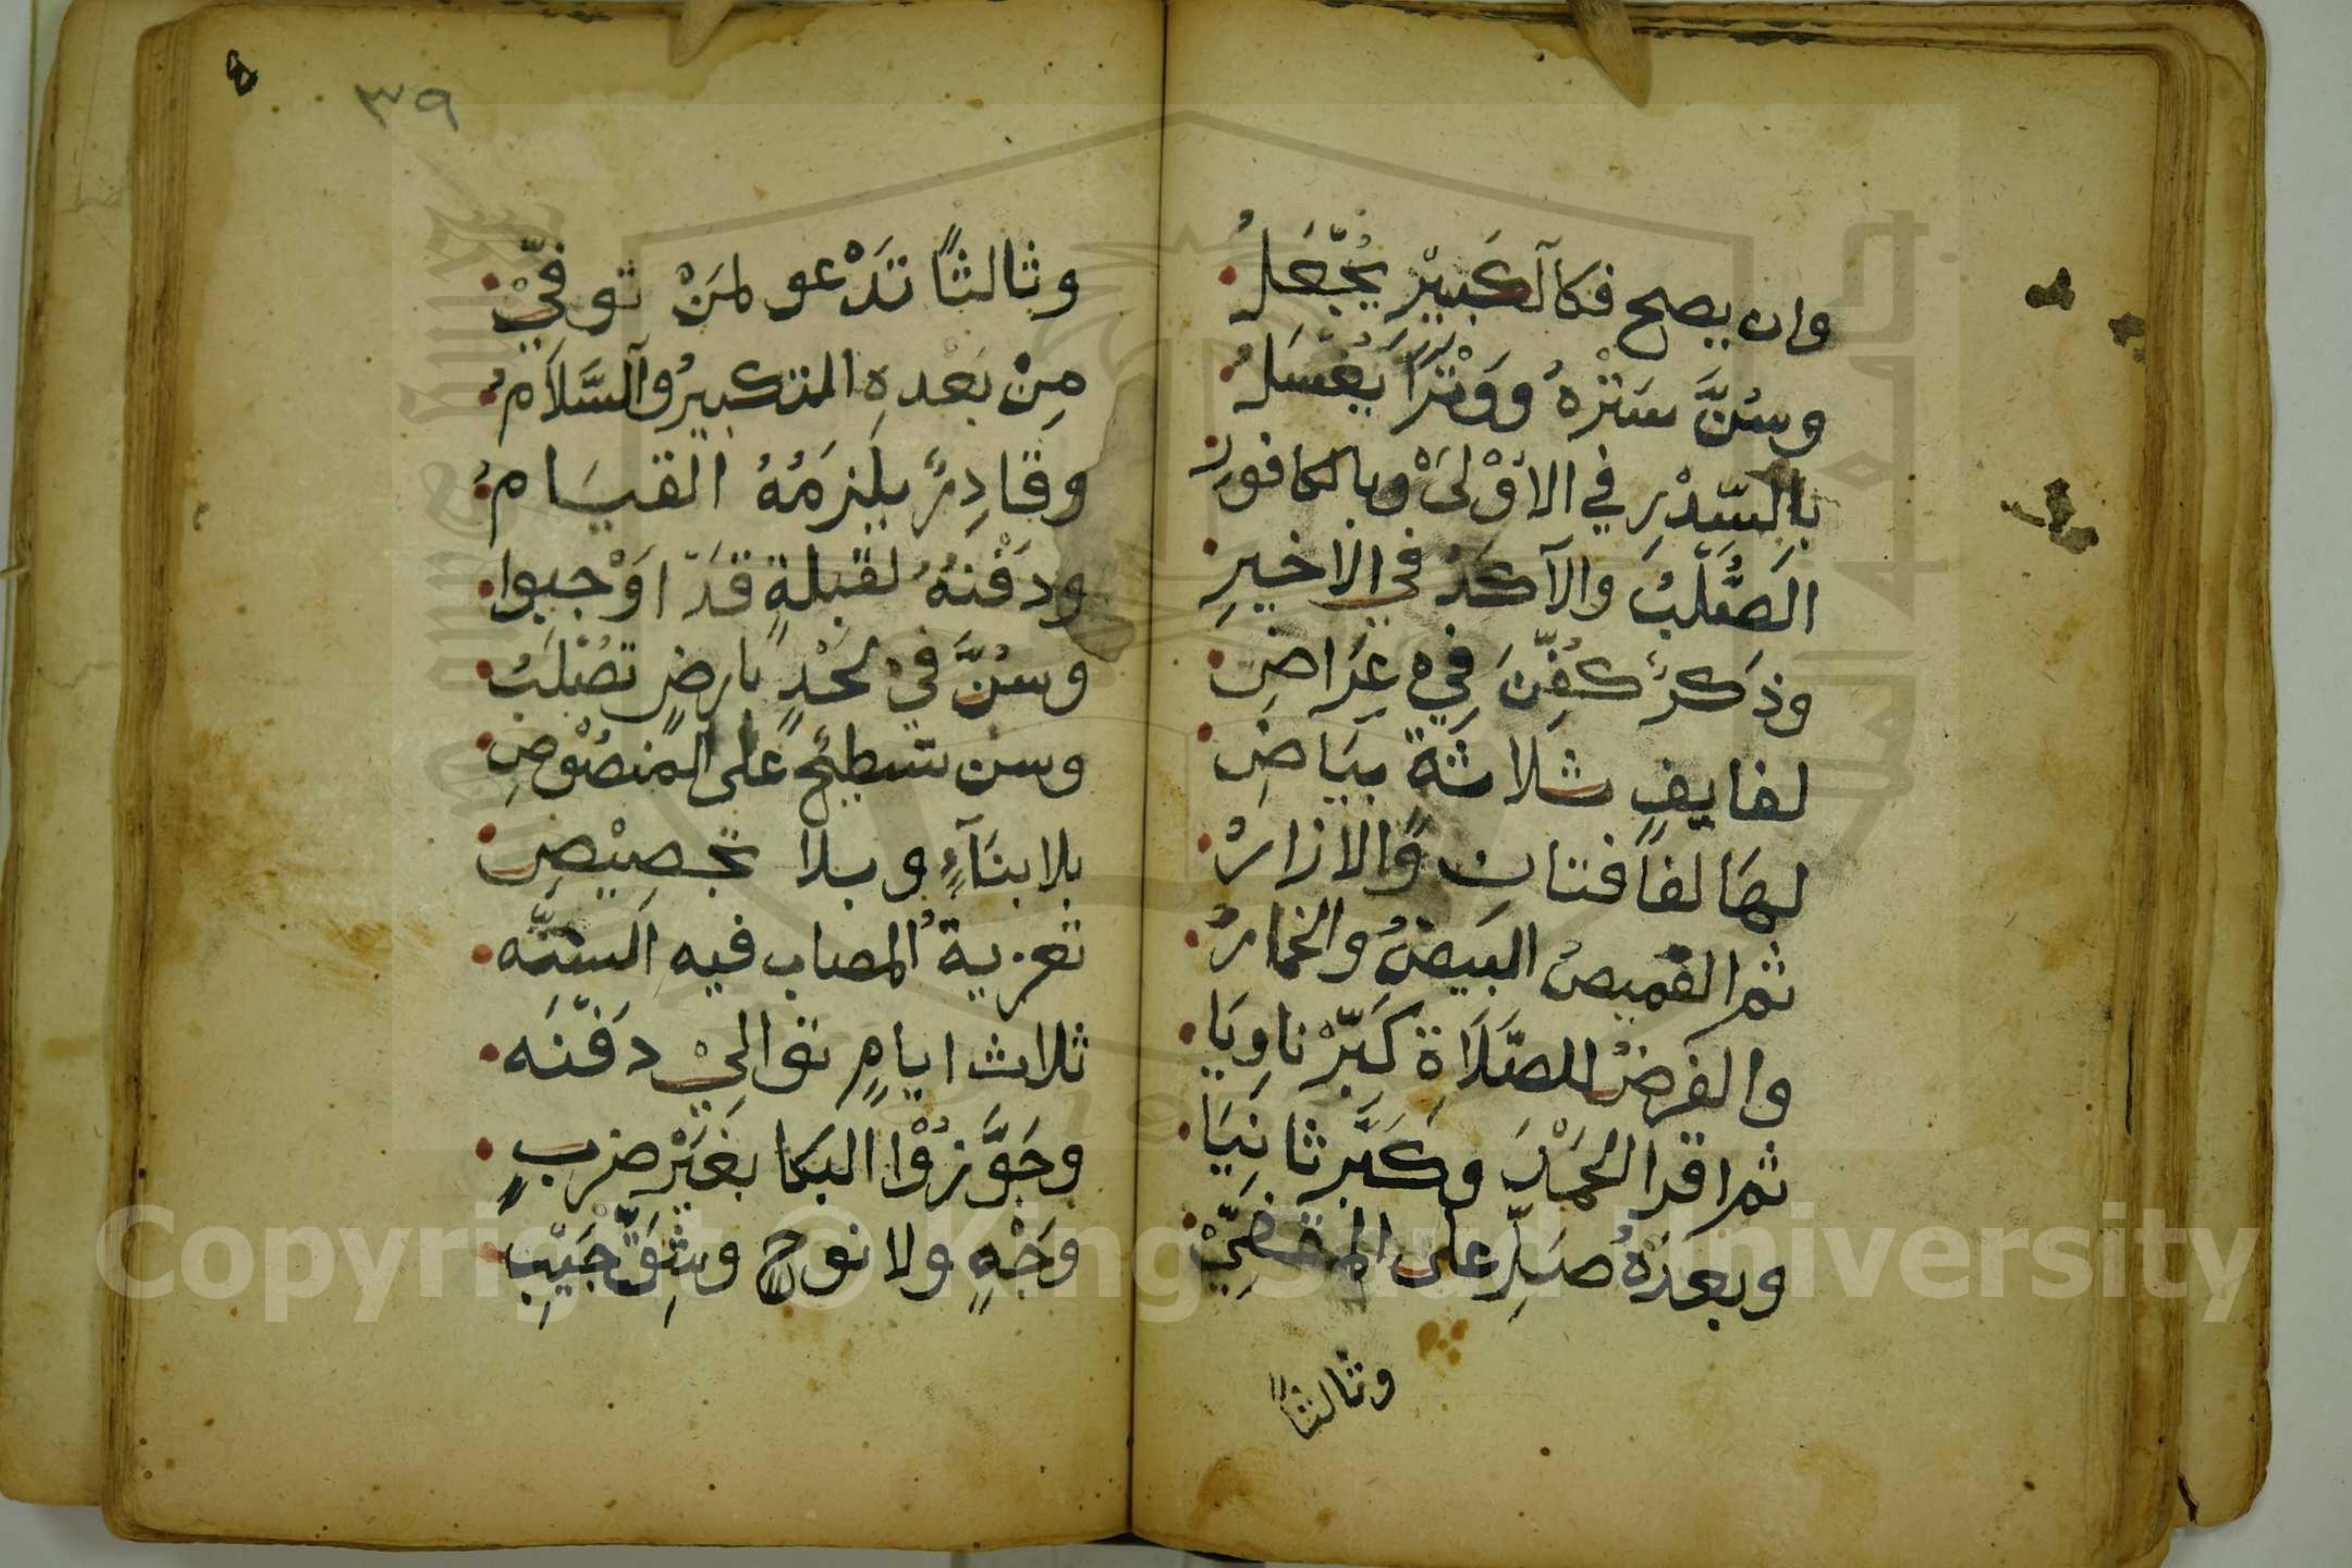 وان يصح فكالكبير يُجْعَلُ
وسُنَّ سَتْرُهُ وَوِتْرًا يُغْسَلُ
بالسِّدْرِ في الأوْلىَ وبالكافورِ
الصُّلْبُ والآكَدُ في الاخيرِ
وذَكرٌ كُفِّنَ فِي عِرَاضِ
لفايفٍ ثلاثةٍ بيَاضِ
لهَا لفافتانِ والازارُ
ثم القميصُ البيضُ والخمارُ
والفَرضُ للصَّلَاةِ كَبِّرْ ناوِيَا
ثم اقرا الحمْدَ وكَبِّر ثانِيَا
وبعدَهُ صَلِّ على المقضِّيْ
وثالثاً
٣٩
وثالثاً تَدْعو لمَنْ توفيّْ
مِنْ بَعْدهِ التكبيرُ والسَّلَامُ
وقادِرٌ يلزمُهُ القيَامُ
ودَفْنهُ لقبلةٍ قَدْ اوْجبوا
وسُنَّ في لحْدٍ بارضٍ تصْلُبُ
وسن تسطيحٌ على المنصُوصِ
بلا بنَآءٍ وبلا تجصِيْصِ
تعزيةُ المصاب فيهِ السنَّه
ثلاث ايامٍ توَاليْ دَفْنَه
وجَوَّزُوْا البكا بغَيْرِ ضربِ
وَجْهٍ ولا نوحٍ وشِقِّ جَيْبِ
Copyright © King Saud University